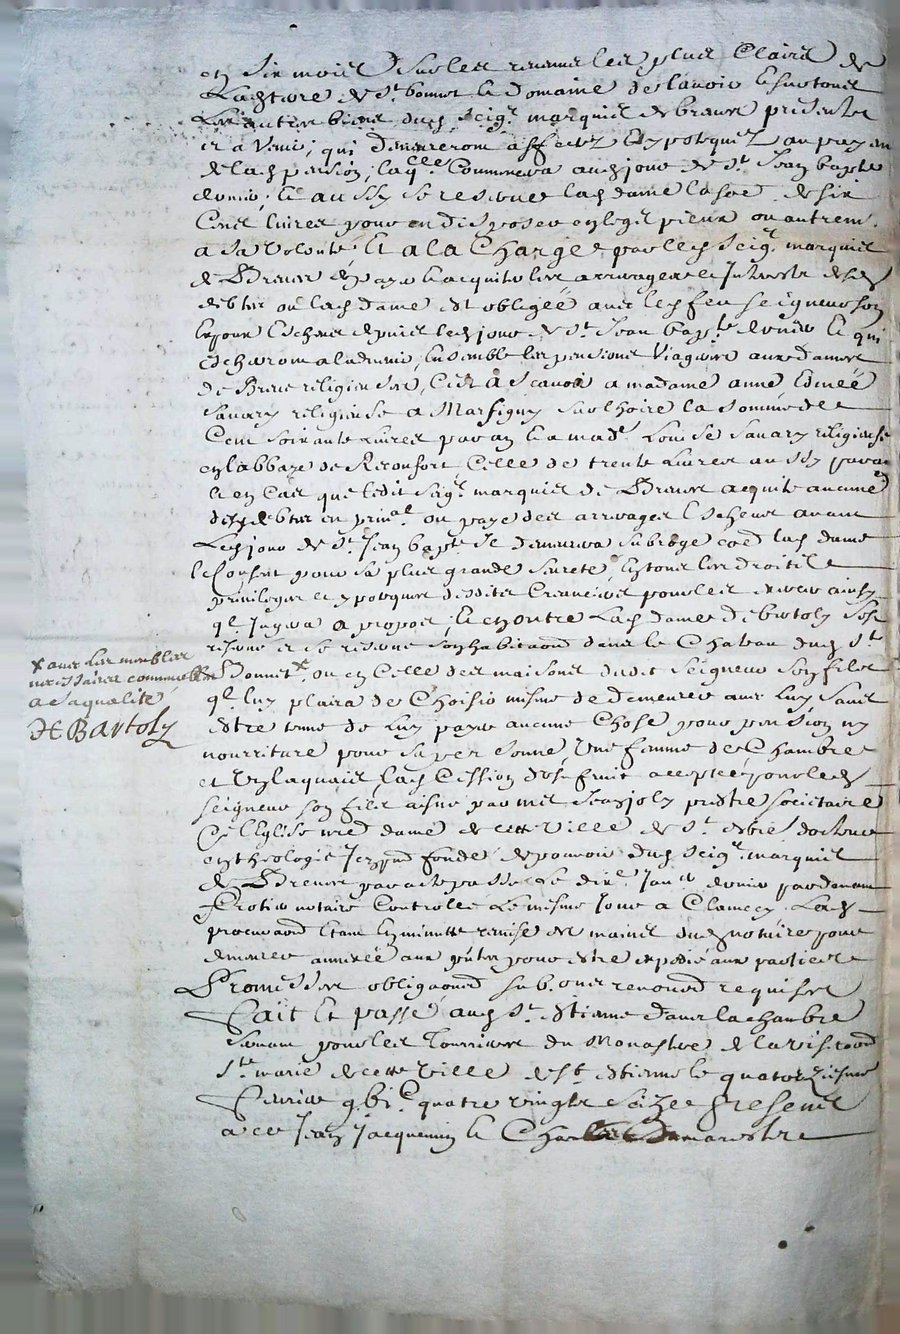 en six mois sur les revenus les plus Clairs de
Lad terre de St bonnet le domaine de lavoir & sur tous
Les autres biens dud seigr marquis de breves presents
et a Venir, qui demeureront affectez & ypotequez au payem
de lad pension, laqlle Commencera aud jour de St Jean bapte
dernier, & aussy se reserve lad dame la soe de six
Cens livres pour en disposer en legs pieux ou autremt
a sa Volonté, Et a la Charge par led seigr marquis
de Breves de payer & acquiter les arrerages & Interests des
debtes ou lad dame est obligée avec led feu seigneur son
Espoux Escheus depuis led jour de St Jean bapte dernier & qui
Escheront a ladvenir, Ensemble les pensions Viageres aux dames
de Breves religieuses, C'est a scavoir a madame anne Edmée
Savary religieuse a Marsigny sur Lhoire la somme de
Cent soixante Livres par an & a made Louise Savary religieuse
en labbaye de Reconfort Celle de trente Livres aussy par an
& en Cas que ledit seigr marquis de Breves acquite aucunes
desd debtes en prinal ou paye des arrerages Escheus avant
Led jour de St Jean bapte Il demeurera subrogé coe lad dame
le Consent pour sa plus grande seureté, En tous les droits
privileges & ypoteques desdits Creanciers pour les exercer ainsy
ql Jugera a propos, & en outre Lad dame de bartoly sest
reservé et se reserve son habitaond dans le Chateau dud St
Bonnet x ou en Celle des maisons dudit seigneur son fils
x avec les meubles
necessaires convenables
a sa qualité
H Bartoly
ql luy plaira de Choisir mesme de demeurer avec luy sans
estre tenue de luy payer aucune Chose pour pension ny
nourriture pour sa personne, Une femme de Chambre
et Un laquais, lad Cession d'usufruit acceptée pour led
seigneur son fils aisné par mre Jean joly prestre societaire
de L'Eglise nre dame de cette Ville de St estienne docteur
en theologie Jcy pnt fondé de pouvoir dud seigr marquis
de Breves par acte passé le dixe Janer dernier pardevant
notaire Controllé le mesme Jour a Clamecy. Lad
procuraond Etant En minutte remise es mains dud notaire pour
demeurer annexée aux pntes pour estre expedié aux parties
Promesses obligaond subons renonond requises
Fait Et passé aud St Estienne dans la chambre
servant pour les Tourrieres du Monastere de la visitaond
Ste marie de cette Ville de St Estienne le quatorziesme
Fevrier gbic quatre vingts seize presents
a ce Jean Jacquemin & Charles Demarestre